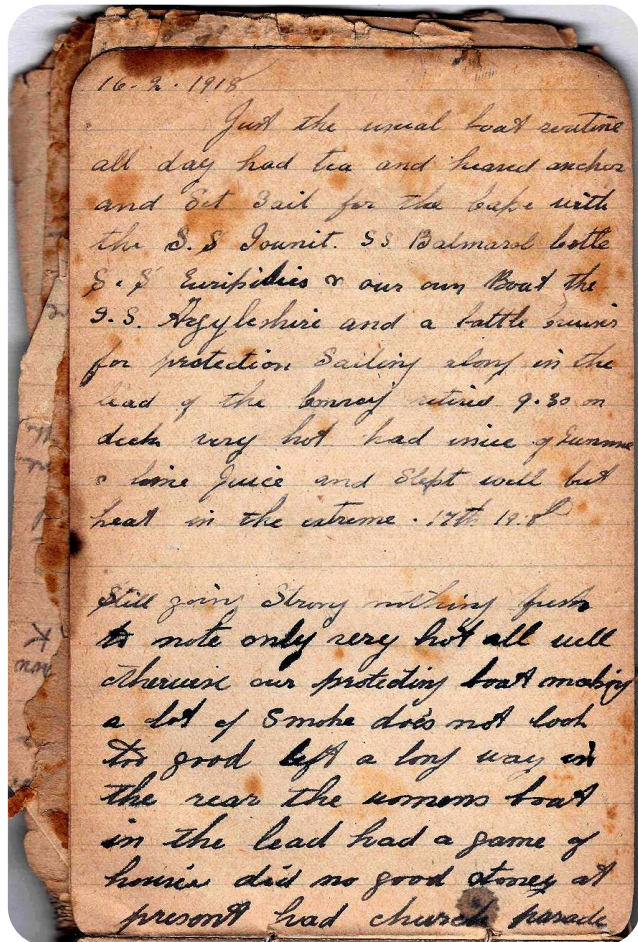 16-2-1918
Just the usual boat routine
all day had tea and heared anchor
and Set Sail for the Cape with
the S.S SS Balmarol Castle
S.S Euripidies & our own Boat the
S.S. Argyleshire and a battle cruiser
for protection Sailing along in the
lead of the Convoy retired 9.30 on
deck very hot had
& lime Juice and Slept well but
heat in the extreme. 17th 19.8
Still going Strong nothing fresh
to note only very hot all well
otherwise our protecting boat making
a lot of Smoke does not look
too good left a long way in
the rear the womens boat
in the lead had a game of
housie did no good stoney at
present had church parade